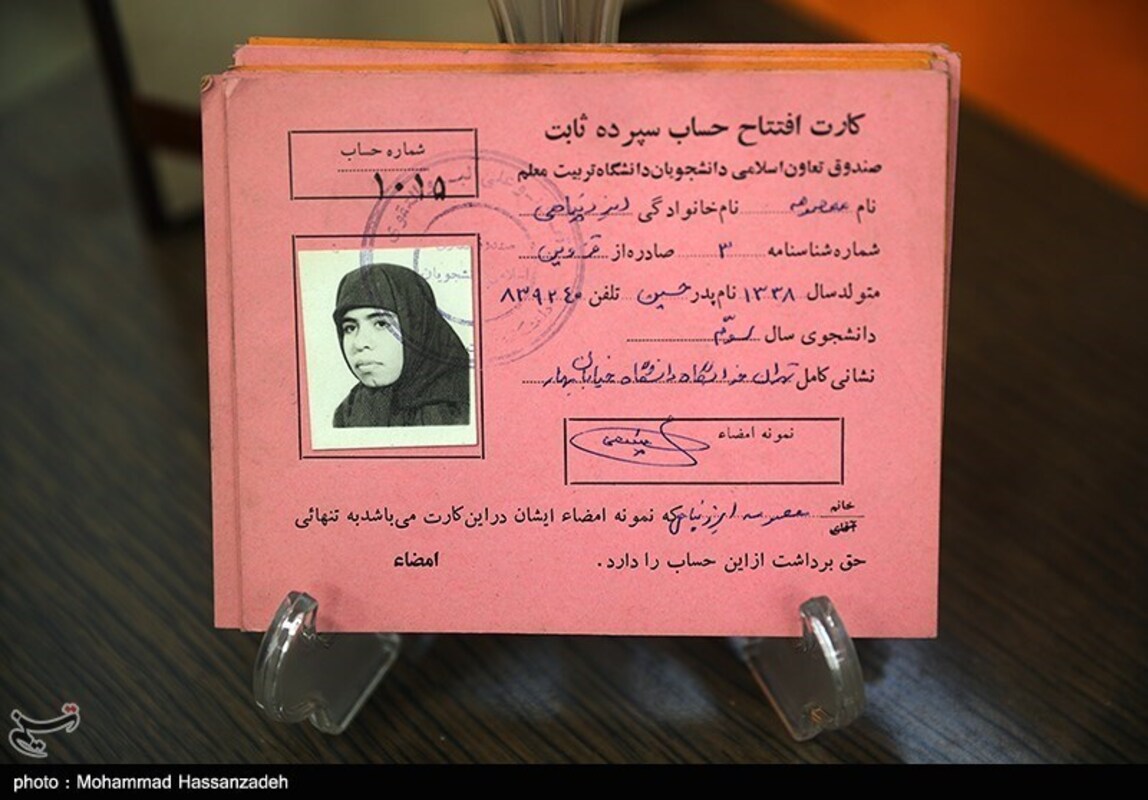 کارت افتتاح حساب سپرده ثابت
صندوق تعاون اسلامی دانشجویان دانشگاه تربیت معلم
شماره حساب
۱۰۱۵
نام معصومه نام خانوادگی ایزدپناهی
شماره شناسنامه ۳ صادره از قزوین
متولد سال ۱۳۳۸ نام پدر حسین تلفن ۸۳۹۲۴۰
دانشجوی سال سوّم
نشانی کامل تهران خوابگاه دانشگاه خیابان بهار
نمونه امضاء
خانم
آقای
معصومه که نمونه امضاء ایشان در این کارت می باشد به تنهائی
حق برداشت از این حساب را دارد.
امضاء
تسنیم
photo : Mohammad Hassanzadeh